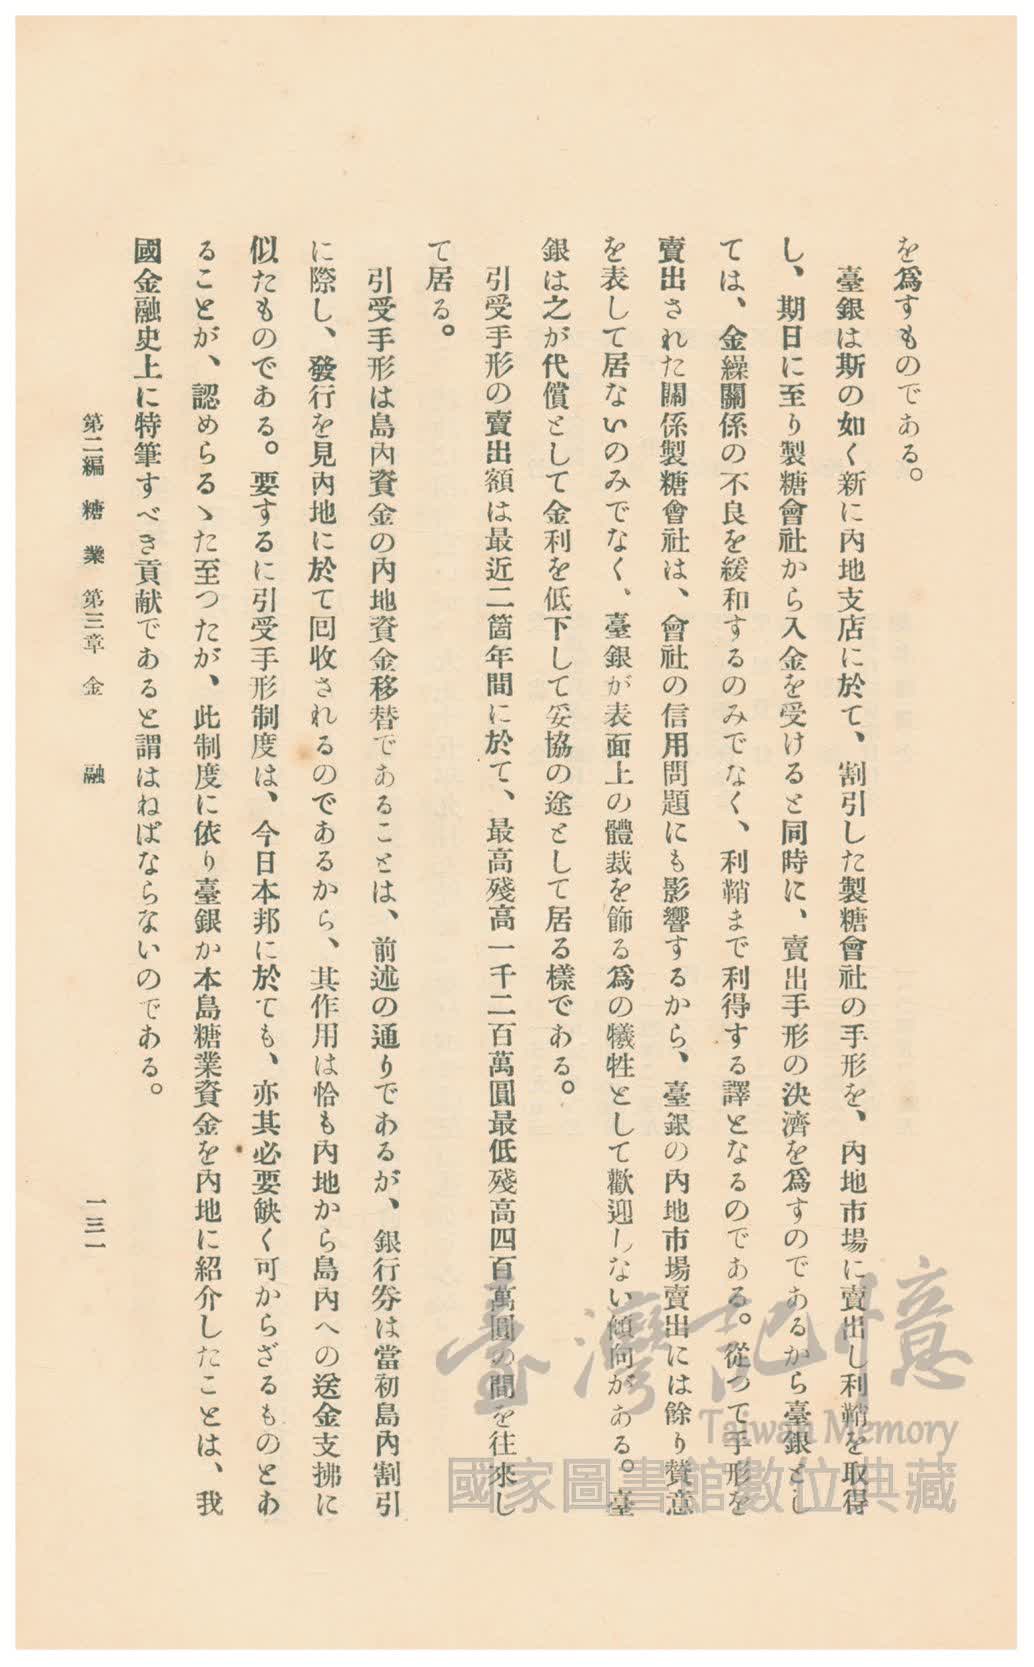 を爲すものである。
臺銀は斯の如く新に內地支店に於て、割引した製糖會社の手形を、內地市場に賣出し利鞘を取得
し、期日に至り製糖會社から入金を受けると同時に、賣出手形の決濟を爲すのであるから臺銀とし
ては、金繰關係の不良を緩和するのみでなく、利鞘まで利得する譯となるのである。從つて手形を
賣出された關係製糖會社は、會社の信用問題にも影響するから、臺銀の內地市場賣出には餘り贊意
を表して居ないのみでなく、臺銀が表面上の體裁を飾る爲の犧牲として歡迎しない傾向がある。臺
銀は之が代償として金利を低下して妥協の途として居る樣である。
引受手形の賣出額は最近二箇年間に於て、最高殘高一千二百萬圓最低殘高四百萬圓の間を往來し
て居る。
引受手形は島內資金の內地資金移替であることは、前述の通りであるが、銀行券は當初島內割引
に際し、發行を見內地に於て回收されるのであるから、其作用は恰も內地から島內への送金支拂に
似たものである。要するに引受手形制度は、今日本邦に於ても、亦其必要缺く可からざるものとあ
ることが、認めらるゝた至つたが、此制度に依り臺銀か本島糖業資金を內地に紹介したことは、我
國金融史上に特筆すべき貢献であると謂はねばならないのである。
第二編 糖業 第三章 金融
一三一
臺灣記憶
Taiwan Memory
國家圖書館數位典藏